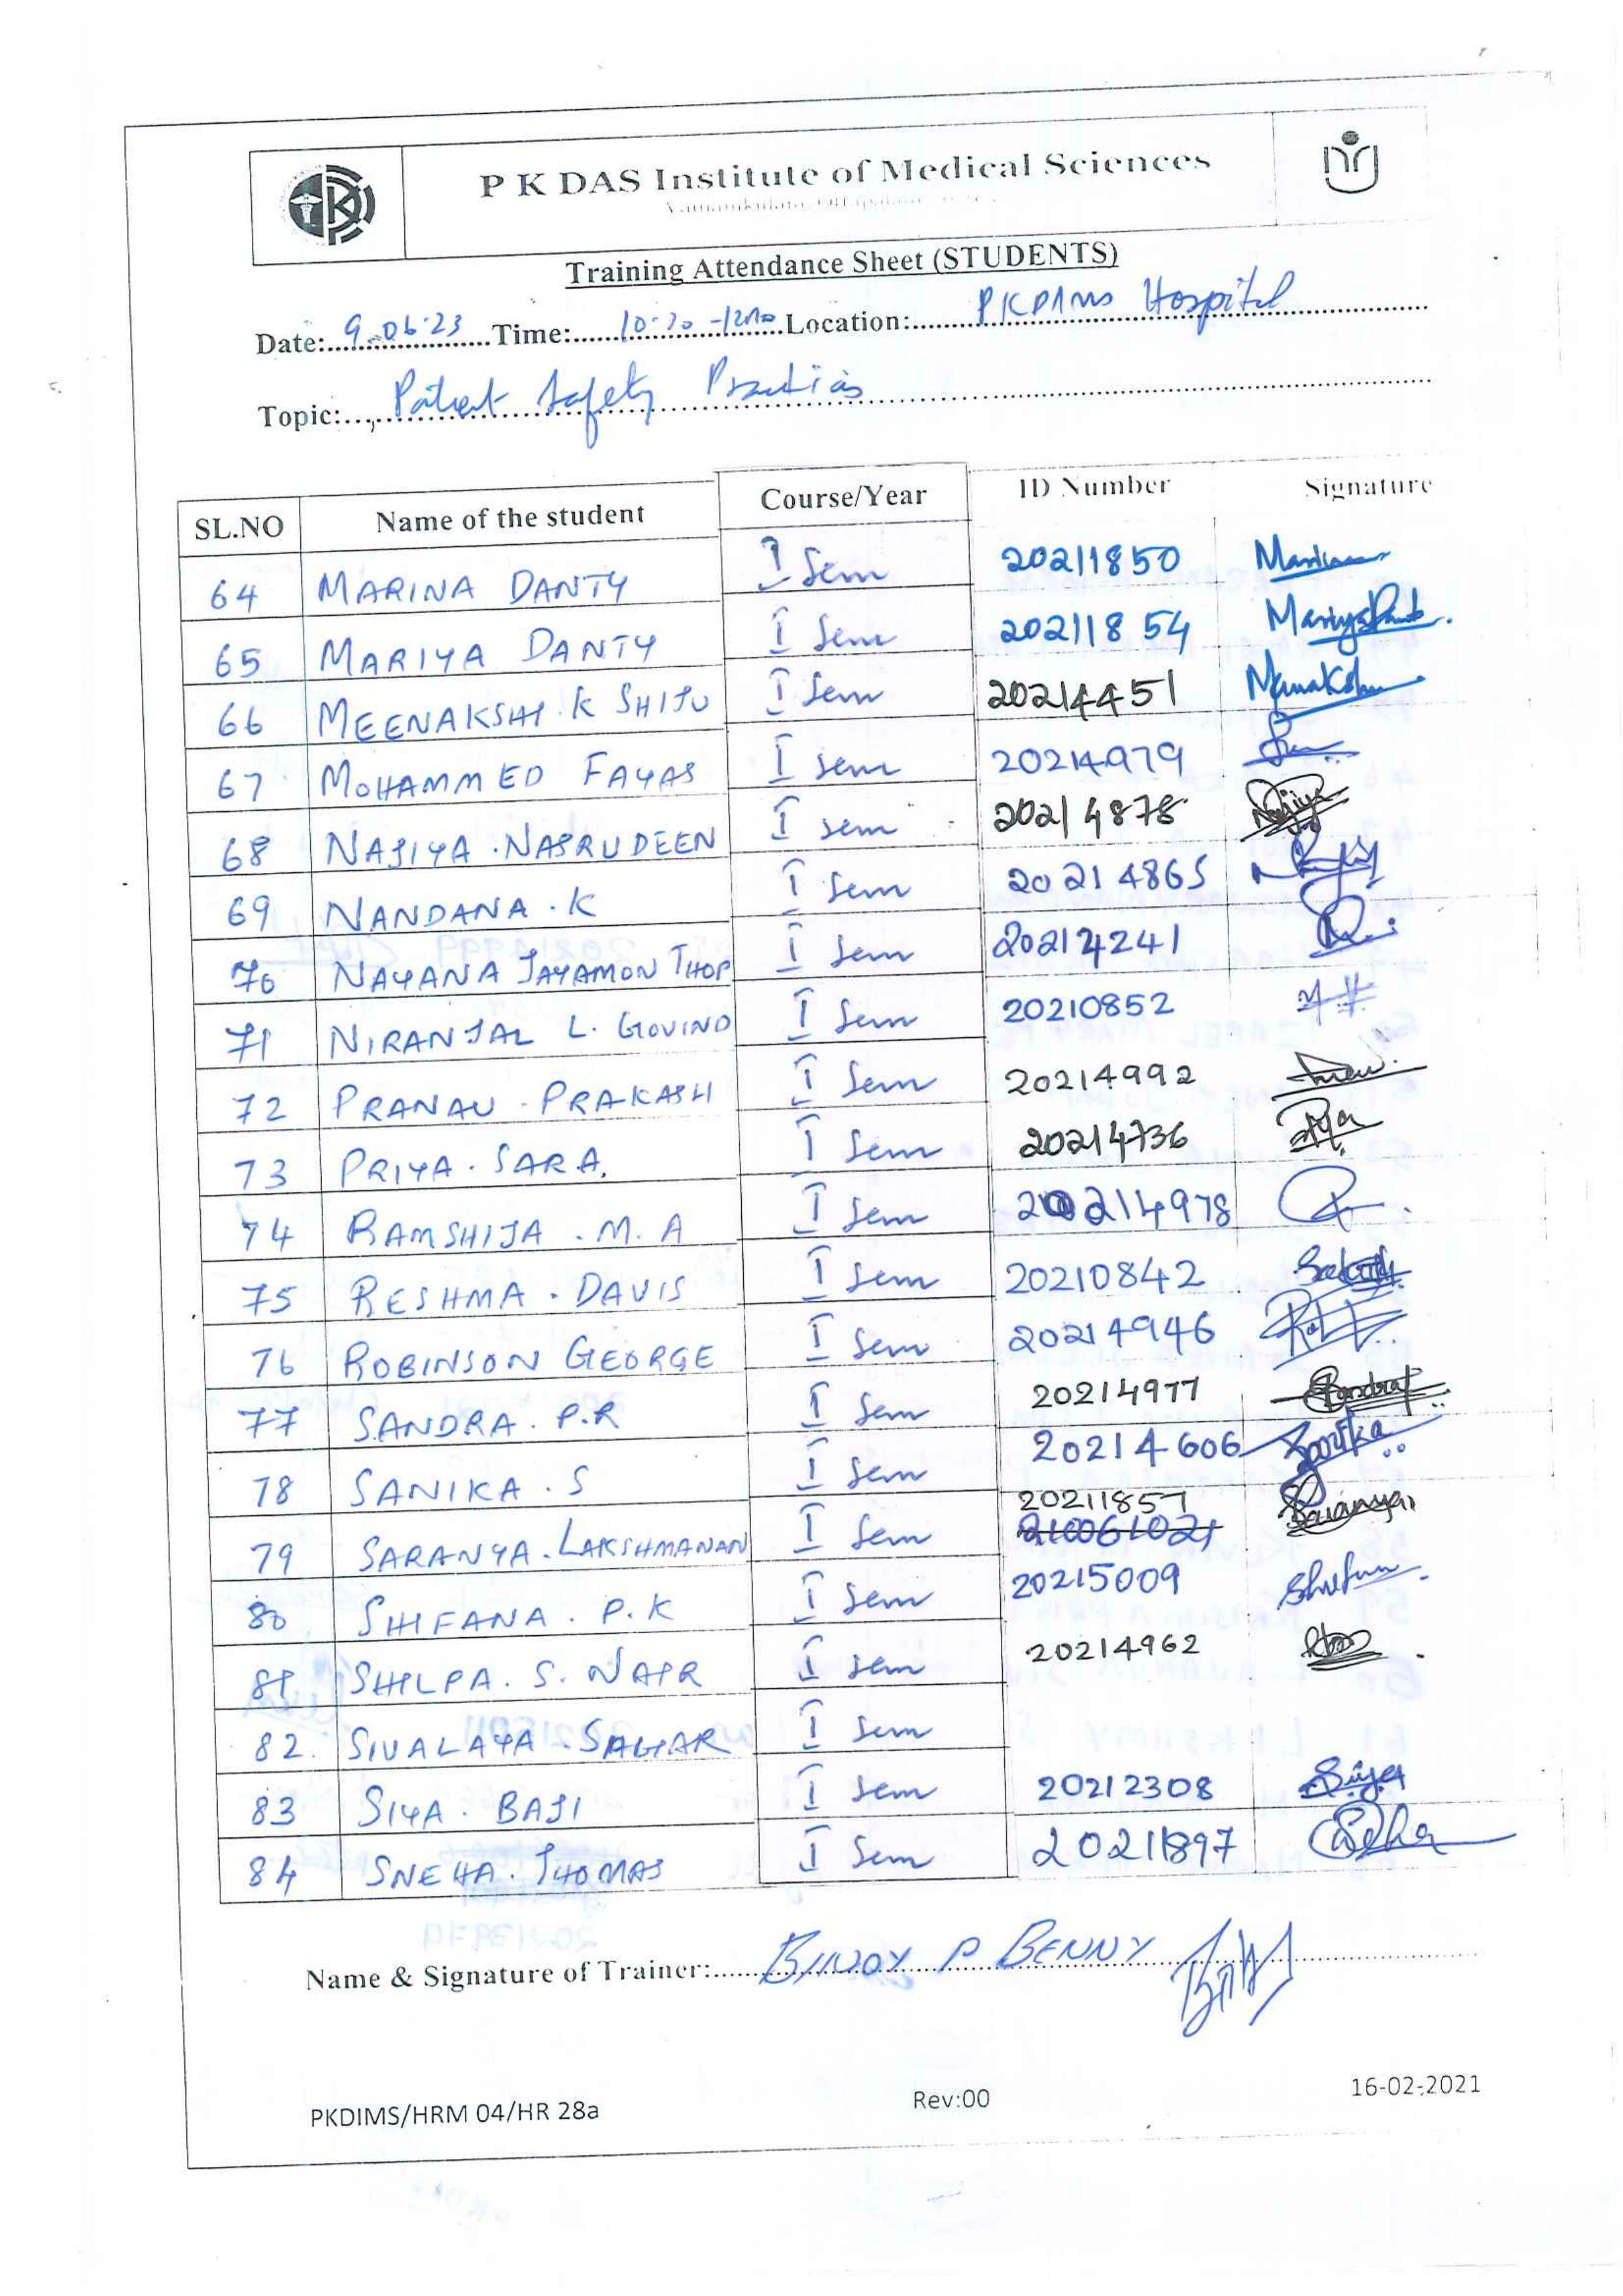 P K DAS Institute of Medical Sciences
Training Attendance Sheet (STUDENTS)
Date: 9.06.23 Time: 10:30 - Location: PKDIMS Hospital
Topic: Patient Safety Practices
SL.NO Name of the student Course/Year ID Number Signature
64 MARINA DANTY I Sem 20211850
65 MARIYA DANTY I Sem 20211854
66 MEENAKSHI K SHIJU I Sem 20214451
67 MOHAMMED FAYAS I sem 20214979
68 NAJIYA . NASRUDEEN I sem 20214878
69 NANDANA . K I Sem 20214865
70 NAYANA JAYAMON THOP I Sem 20214241
71 NIRANJAL L. GOVIND I Sem 20210852
72 PRANAV . PRAKASH I Sem 20214992
73 PRIYA . SARA. I Sem 20214736
74 RAMSHIJA . M. A I Sem 20214978
75 RESHMA . DAVIS I Sem 20210842
76 ROBINSON GEORGE I Sem 20214946
77 SANDRA . P.R I Sem 20214977
78 SANIKA . S I Sem 20214606
79 SARANYA . LAKSHMANAN I Sem 20211857 210061021 Saranya
80 SHIFANA . P.K I Sem 20215009
81 SHILPA . S. NAIR I sem 20214962
82. SIVALAYA . SAGAR I Sem
83 SIYA . BAJI I Sem 20212308 Siya
84 SNEHA . THOMAS I Sem 20211897
Name & Signature of Trainer: BINOY P BENNY
PKDIMS/HRM 04/HR 28a Rev:00 16-02-2021